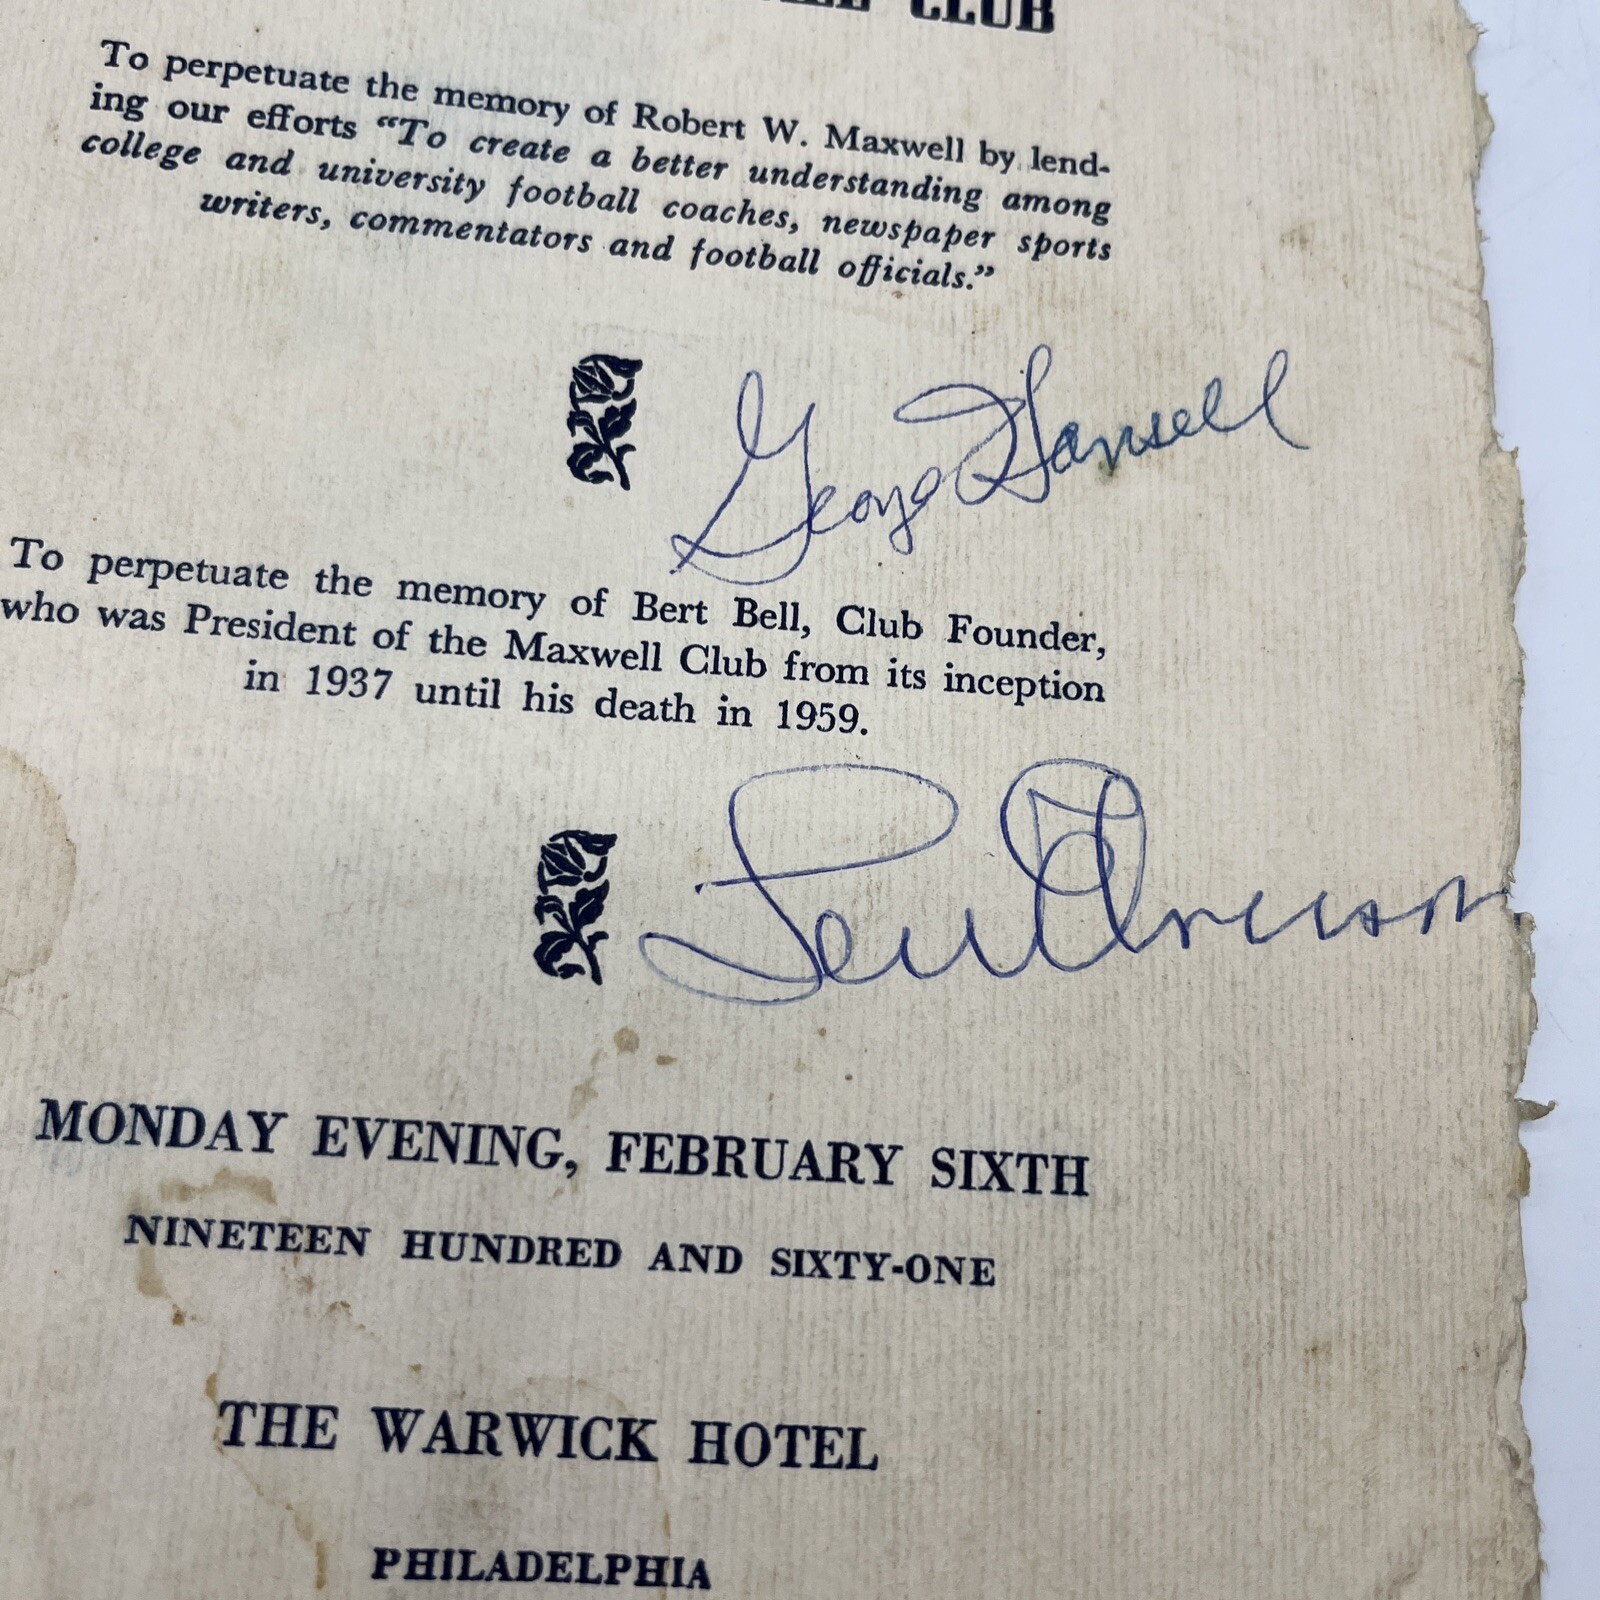 CLUB
To perpetuate the memory of Robert W. Maxwell by lend-
ing our efforts “To create a better understanding among
college and university football coaches, newspaper sports
writers, commentators and football officials.”
George Hansell
To perpetuate the memory of Bert Bell, Club Founder,
who was President of the Maxwell Club from its inception
in 1937 until his death in 1959.
MONDAY EVENING, FEBRUARY SIXTH
NINETEEN HUNDRED AND SIXTY-ONE
THE WARWICK HOTEL
PHILADELPHIA